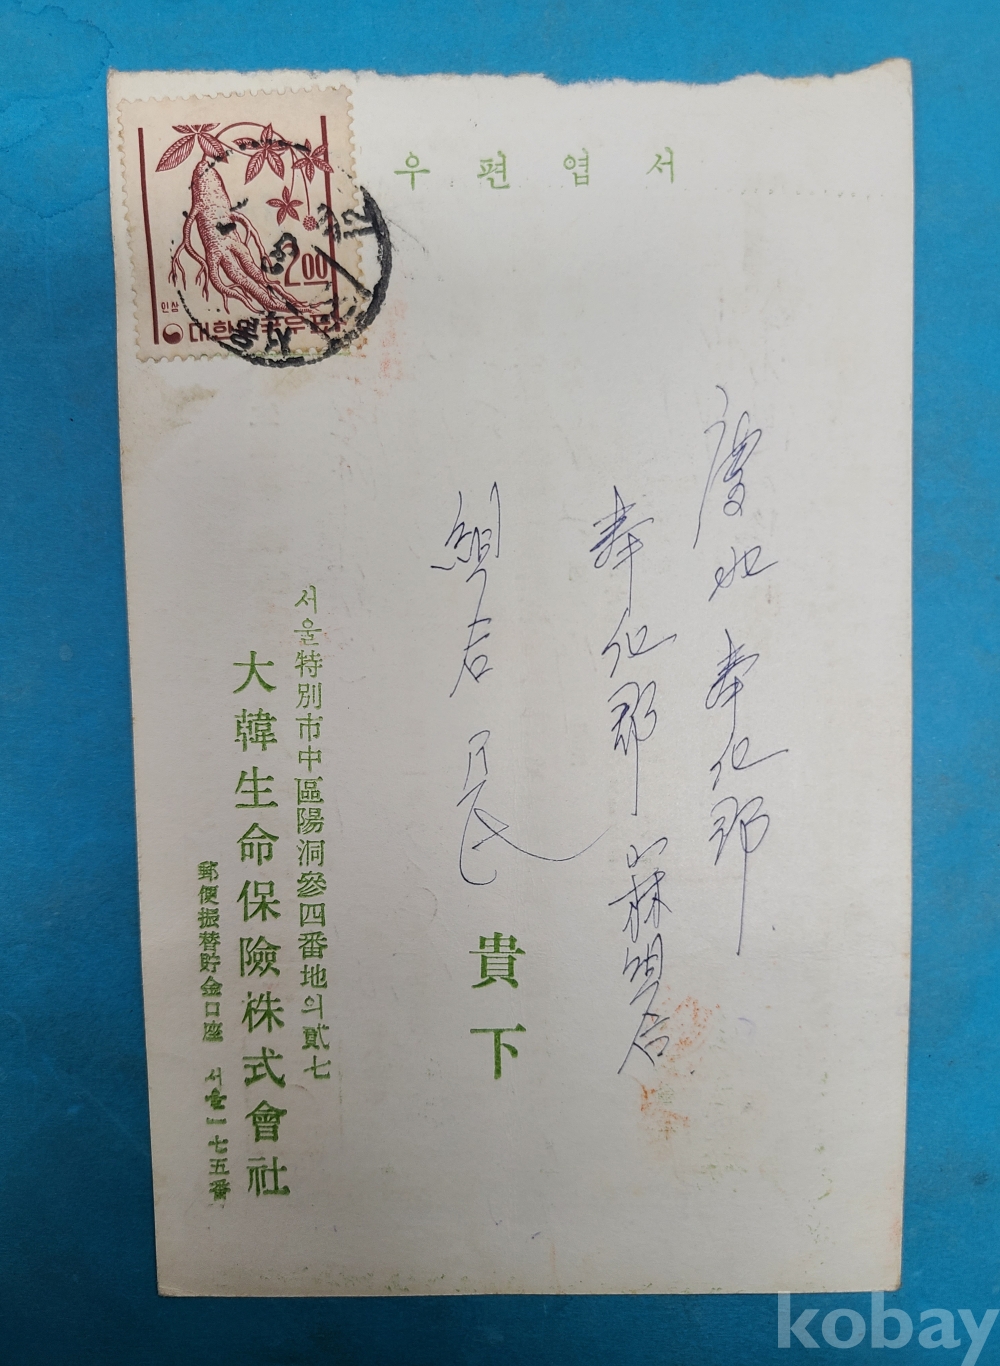 우편엽서
慶北 奉化郡
奉化郡 山林組合
組合長 貴下
서울特別市中區陽洞參四番地의貳七
大韓生命保險株式會社
郵便振替貯金口座 서울一七五番
2.00
인삼
대한민국우표
kobay